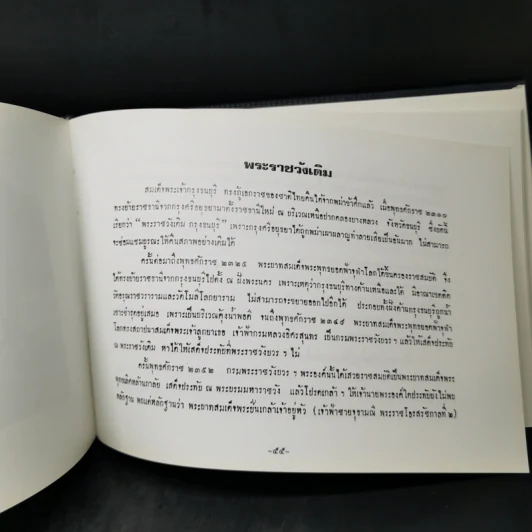 พระราชวังเดิม
สมเด็จพระเจ้ากรุงธนบุรี ทรงกู้เอกราชของชาติไทยคืนได้จากพม่าข้าศึกแล้ว เมื่อพุทธศักราช ๒๓๑๐
ทรงย้ายราชธานีจากกรุงศรีอยุธยามาตั้งราชธานีใหม่ ณ บริเวณเหนือปากคลองบางหลวง จังหวัดธนบุรี ซึ่งบัดนี้
เรียกว่า "พระราชวังเดิม กรุงธนบุรี" เพราะกรุงศรีอยุธยาได้ถูกพม่าเผาผลาญทำลายเสียเป็นอันมาก ไม่สามารถ
จะซ่อมแซมบูรณะให้คืนสภาพอย่างเดิมได้
ครั้นต่อมาถึงพุทธศักราช ๒๓๒๕ พระบาทสมเด็จพระพุทธยอดฟ้าจุฬาโลกได้ขึ้นครองราชสมบัติ จึง
ได้ทรงย้ายราชธานีจากกรุงธนบุรีไปตั้ง ณ ฝั่งพระนคร เพราะเหตุว่ากรุงธนบุรีทางด้านเหนือและใต้ มีอาณาเขตติด
วัดอรุณราชวรารามและวัดโมลีโลกยาราม ไม่สามารถจะขยายออกไปอีกได้ ประกอบทั้งฝั่งด้านกรุงธนบุรีถูกน้ำ
เซาะชำรุดอยู่เสมอ เพราะเป็นบริเวณคุ้งน้ำพอดี จนถึงพุทธศักราช ๒๓๔๕ พระบาทสมเด็จพระพุทธยอดฟ้าจุฬา
โลกทรงสถาปนาสมเด็จพระเจ้าลูกยาเธอ เจ้าฟ้ากรมหลวงอิศรสุนทร เป็นกรมพระราชวังบวร ฯ แล้วให้เสด็จประทับ
ณ พระราชวังเดิม หาได้ให้เสด็จประทับที่พระราชวังบวร ฯ ไม่
ครั้นพุทธศักราช ๒๓๕๒ กรมพระราชวังบวร ฯ พระองค์นั้นได้เสวยราชสมบัติเป็นพระบาทสมเด็จพระ
พุทธเลิศหล้านภาลัย เสด็จประทับ ณ พระบรมมหาราชวัง แล้วโปรดเกล้า ฯ ให้เจ้านายพระองค์ใดประทับยังไม่พบ
หลักฐาน พบแต่หลักฐานว่า พระบาทสมเด็จพระปิ่นเกล้าเจ้าอยู่หัว (เจ้าฟ้าชายจุฑามณี พระราชโอรสรัชกาลที่ ๒)
-๕๕-